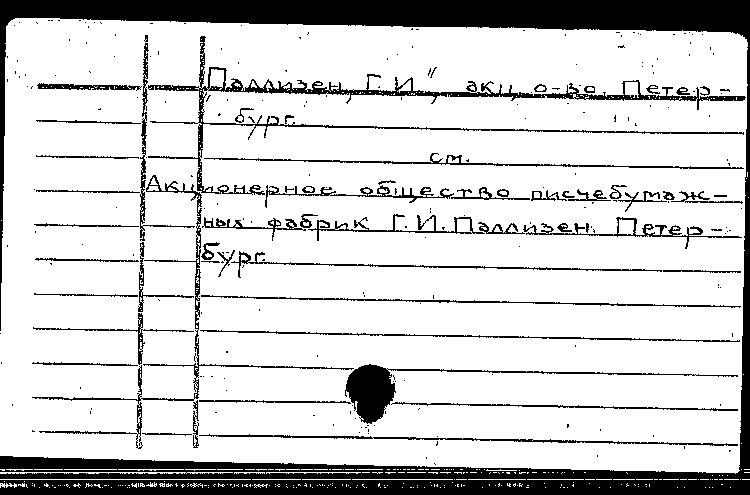 „Паллизен, Г. И.", акц. о-во. Петер-
бург.
см.
Акционерное общество писчебумаж-
ных фабрик Г. И. Паллизен. Петер-
бург.